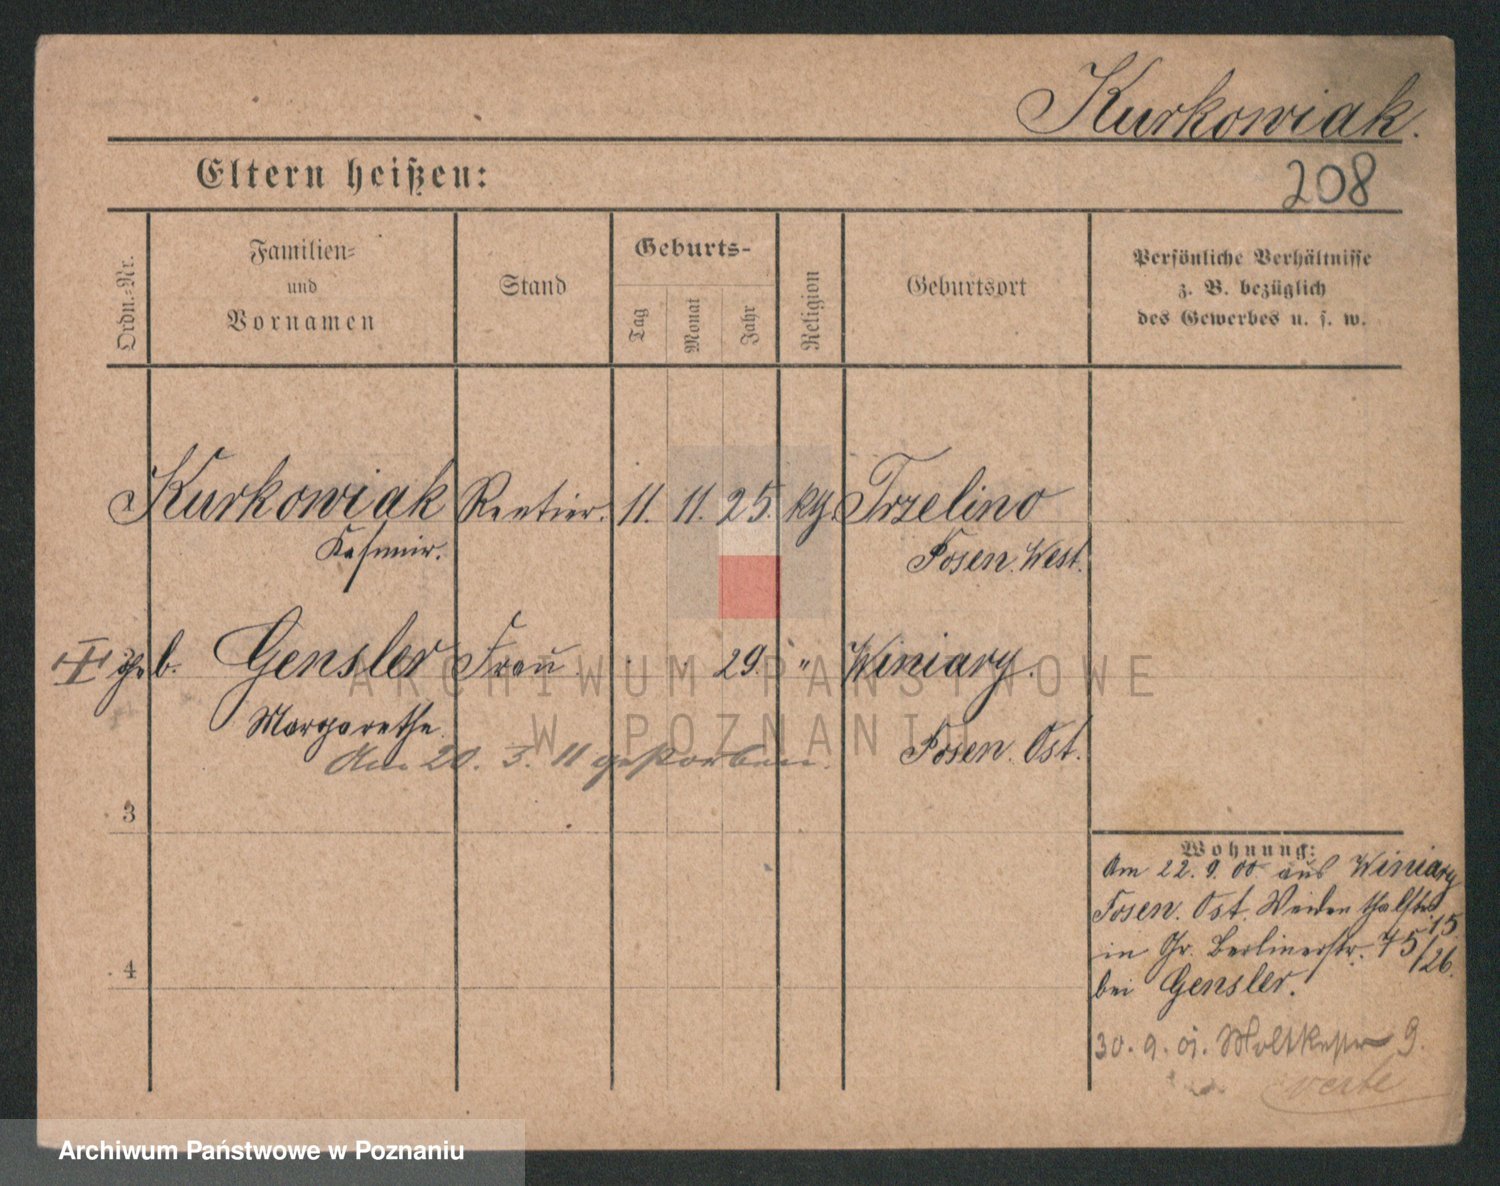 Kurkowiak.
208
Eltern heißen:
Ordn.-Nr.
Familien-
und
Vornamen
Stand
Geburts-
Tag
Monat
Jahr
Religion
Geburtsort
Persönliche Verhältnisse
z. B. bezüglich
des Gewerbes u. s. w.
Kurkowiak Rentier. 11. 11. 25. kg. Trzelino
Kasimir. Posen. West.
geb. Gensler Frau . . 29. " Winiary.
Margarethe Posen. Ost.
Am 20. 3. 11 gestorben.
3
4
Wohnung:
Am 22. 9. 00 aus Winiary
Posen. Ost. Weidenthalstr. 15
in Gr. Berlinerstr. 75/26.
bei Gensler.
30. 9. 01. Moltkestr 9.
ARCHIWUM PAŃSTWOWE
W POZNANIU
Archiwum Państwowe w Poznaniu